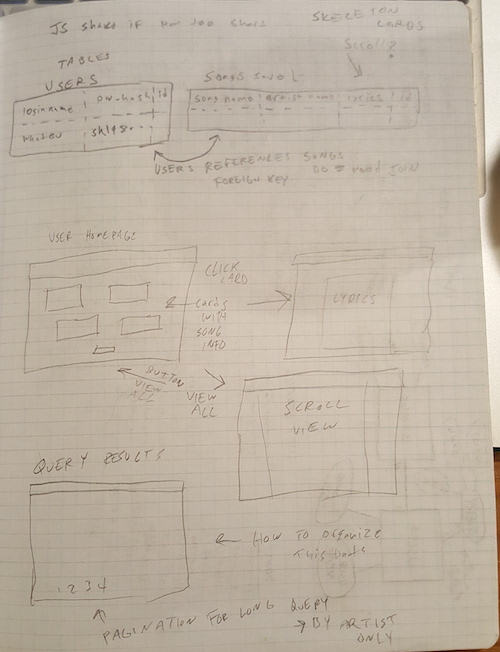 JS shake if
SKELETON
CARDS
Scroll?
TABLES
USERS
loginname | pw-hash | id
SONGS
song name | artist name | lyrics | id
USERS REFERENCES SONGS
FOREIGN KEY
need JOIN
USER HOMEPAGE
CLICK
CARD
Cards
WITH
SONG
INFO
LYRICS
BUTTON
VIEW
ALL
VIEW
ALL
SCROLL
VIEW
QUERY RESULTS
HOW TO ORGANIZE
This
1 2 3 4
PAGINATION FOR LONG QUERY
→ BY ARTIST
ONLY